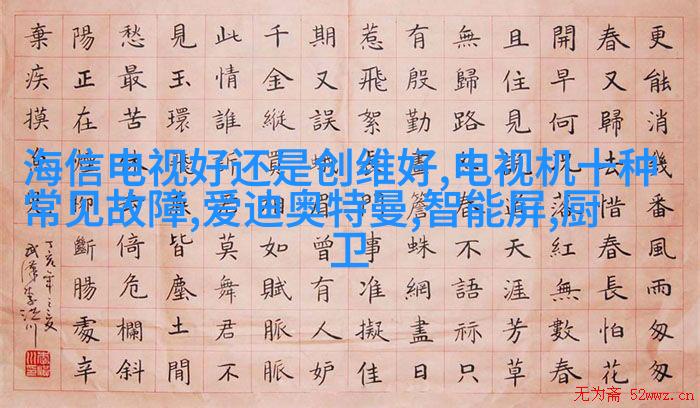 海信电视好还是创维好,电视机十种
常见故障,爱迪奥特曼,智能屏,厨
卫
更能消幾番風雨匆匆
春又歸去惜春長怕花
開早何況落紅無數春
且住見天涯芳草
無歸路怨春不語祘只
有殷勤畫簷蛛網盡日
惹飛絮長門事准擬佳
期又誤蛾眉曾有人妒
千金縱買相如賦脈脈
此情誰訴君莫舞君不
見玉環飛燕皆塵土閒
愁最苦休去倚危欄斜
陽正在煙柳斷腸處辛
棄疾摸魚兒
无为斋 52wwz.cn